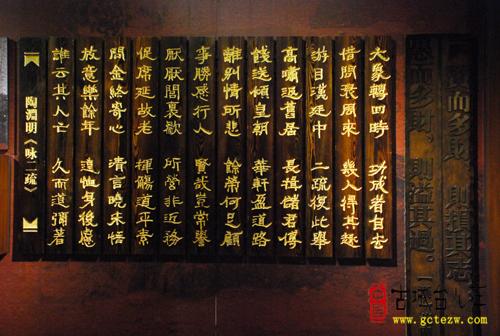 賢而多財，則損其志
愚而多財，則益其過。
大象轉四時 功成者自去
借問衰周來 幾人得其趣
游目漢廷中 二疏復此舉
高嘯返舊居 長揖儲君傅
餞送傾皇朝 華軒盈道路
離別情所悲 餘榮何足顧
事勝感行人 賢哉豈常譽
厭厭閭裏歡 所營非近務
促席延故老 揮觴道平素
問金終寄心 清言曉未悟
放意樂餘年 遑恤身後慮
誰云其人亡 久而道彌著
陶淵明《咏二疏》
www.gctezw.com